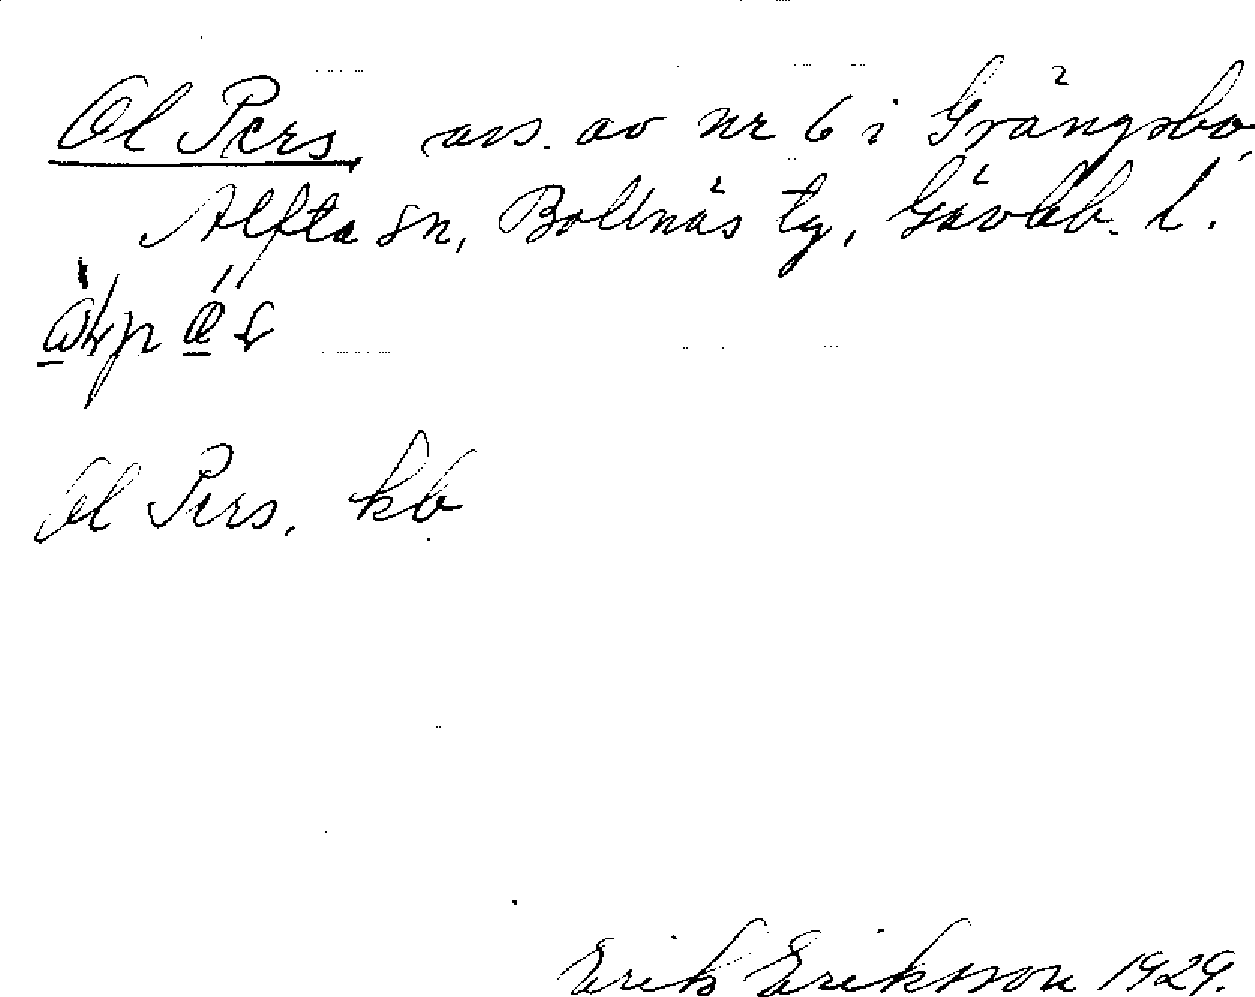 Ol Pers avs. av nr 6 i Grängsbo,
Alfta sn, Bollnäs tg, Gävleb. l.
Ol Pers. kb
Erik Eriksson 1929.